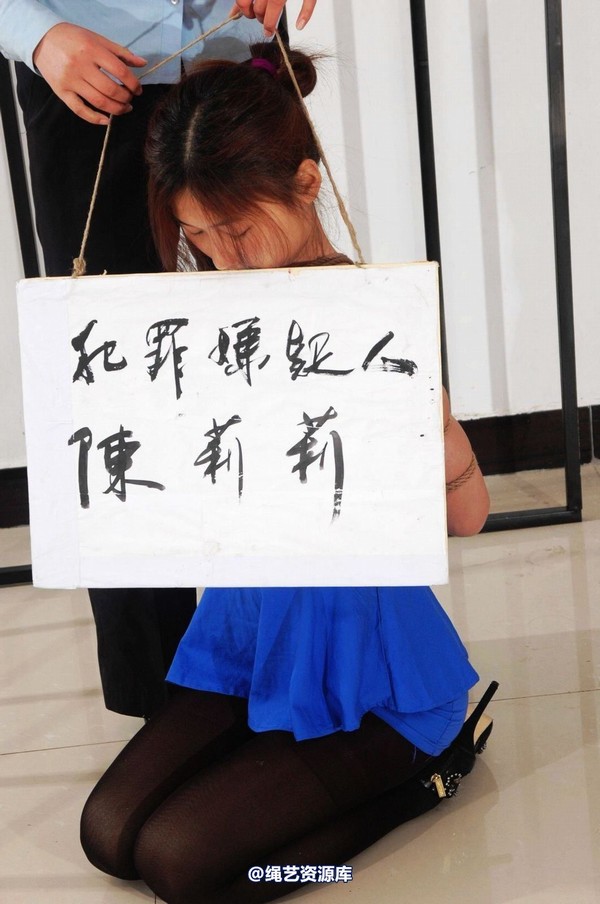 犯罪嫌疑人
陳莉莉
@绳艺资源库